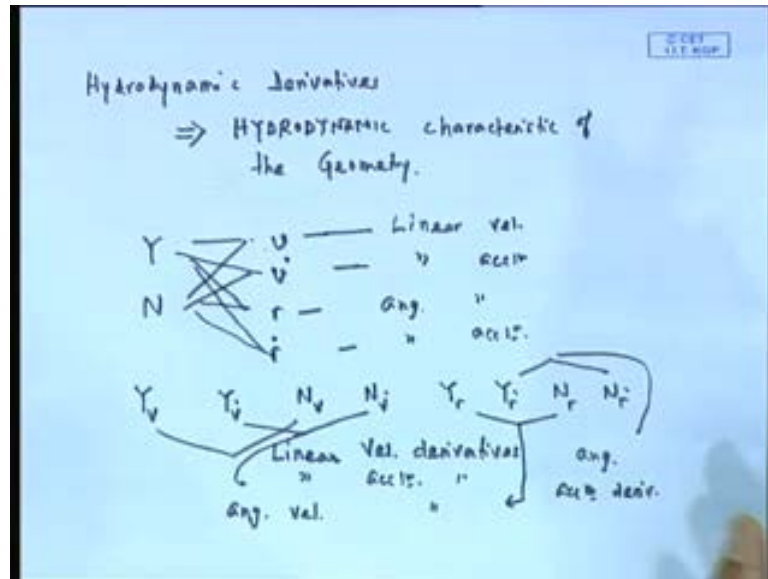 © CET
I.I.T. KGP
Hydrodynamic derivatives
⇒ HYDRODYNAMIC characteristic of
the Geometry.
Y v — Linear vel.
v̇ — " accln
N r — ang. "
ṙ — " accln.
Y_v Y_v̇ N_v N_v̇ Y_r Y_ṙ N_r N_ṙ
Linear Vel. derivatives ang.
" accln. " accln deriv.
ang. vel. "